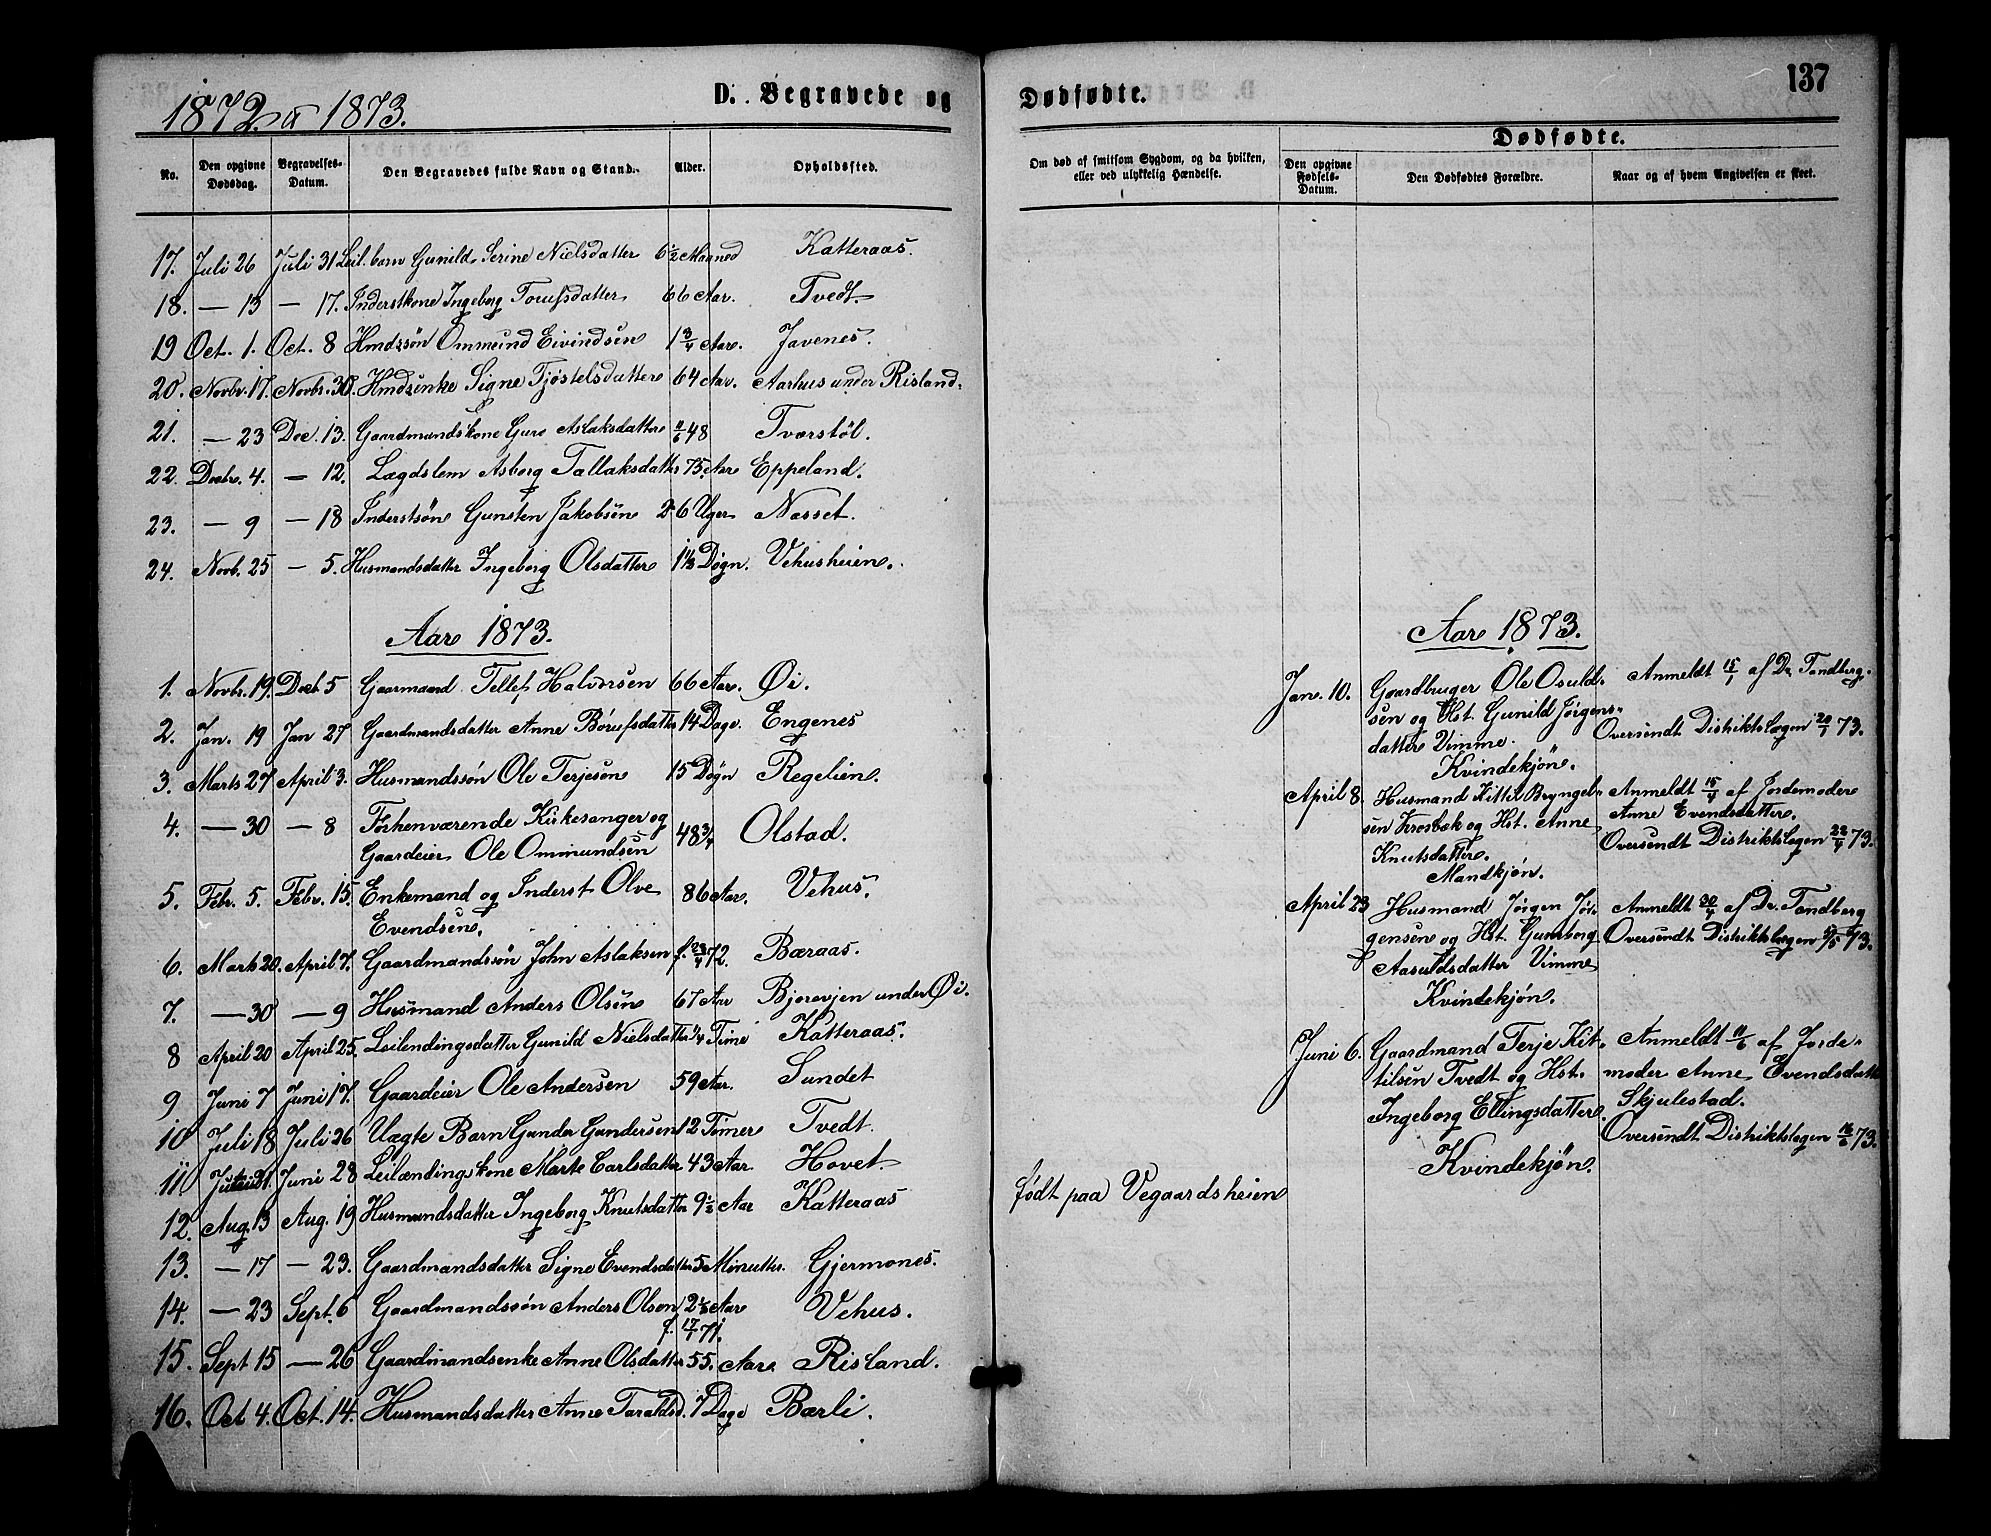 1872 og 1873.
D. Begravede og
Dødfødte.
137
No.
Den opgivne Dødsdag.
Begravelses-Datum.
Den Begravedes fulde Navn og Stand.
Alder.
Opholdssted.
Om død af smitsom Sygdom, og da hvilken, eller ved ulykkelig Hændelse.
Dødfødte.
Den opgivne Fødsels-Datum.
Den Dødfødtes Forældre.
Naar og af hvem Angivelsen er skeet.
17. Juli 26 Juli 31 Leil.barn Gunild Serine Nielsdatter 6½ Maaned Katteraas.
18. — 13 — 17. Inderstkone Ingeborg Torufsdatter 66 Aar. Tvedt.
19 Oct. 1. Oct. 8 Hmdssøn Ommund Eivindsen 1¾ Aar. Javenes.
20. Novbr. 17. Novbr. 30. Hmdsenke Signe Tjøstelsdatter 64 Aar. Aarhus under Risland.
21. — 23 Dec. 13. Gaardmandskone Guro Aslaksdatter 11/6 48 Tværstøl.
22. Decbr. 4. — 12. Lægdslem Asborg Tallaksdattr 75 Aar Eppeland.
23. — 9 — 18 Inderstsøn Gunsten Jakobsen 26 Uger Næsset.
24. Novb. 25 — 5. Husmandsdatter Ingeborg Olsdatter 1⅓ Døgn. Vehusheien.
Aar 1873.
1. Novbr. 19. Decb. 5 Gaarmand Tellef Halvorsen 66 Aar. Øi.
2. Jan. 19 Jan 27 Gaardmandsdatter Anne Børufsdatter 14 Dage. Engenes
3. Marts 27 April 3. Husmandssøn Ole Terjesøn 15 Døgn Regelien.
4. — 30 — 8 Forhenværende Kirkesanger og
Gaardeier Ole Ommundsen 48¾ Olstad.
5. Febr. 5. Febr. 15. Enkemand og Inderst Olve
Evendsen. 86 Aar. Vehus.
6. Marts 20. April 7. Gaardmandssøn John Aslaksen f. 23/4 72. Bæraas.
7. — 30 — 9 Husmand Anders Olsen 67 Aar Bjorevjen under Øi.
8 April 20 April 25. Leilendingsdatter Gunild Nielsdatter ¼ Time Katteraas.
9 Juni 7 Juni 17. Gaardeier Ole Andersen 59 Aar. Sundet
10 Juli 18 Juli 26 Uægte Barn Gunder Gundersen 12 Timer Tvedt.
11. Juni 28 Leilændingskone Marte Carlsdatter 43 Aar. Hovet
12. Aug. 13 Aug. 19 Husmandsdatter Ingeborg Knutsdatter 9½ Aar Katteraas
født paa Vegaardsheien
13. — 17 — 23. Gaardmandsdatter Signe Evendsdatter 5 Minutter. Gjermones.
14. — 23 Sept. 6 Gaardmandssøn Anders Olsen 2⅓ Aar Vehus.
f. 17/4 71.
15. Sept 15 — 26 Gaardmandsenke Anne Olsdatter 55. Aar Risland.
16. Oct 4. Oct. 14. Husmandsdatter Anne Taraldsd. 7 Dage Bærli.
Aar 1873.
Jan. 10. Gaardbruger Ole Osuld- Anmeldt 15/1 af Dr. Tandberg.
sen og Hst. Gunild Jørgens- Oversendt Distriktslægen 20/1 73.
datter Vimme.
Kvindekjøn.
April 8. Husmand Kittil Bryngel- Anmeldt 15/4 af Jordemoder
sen Krosbæk og Hst. Anne Anne Evendsdatter.
Knutsdatter. Oversendt Distriktslægen 22/4 73.
Mandkjøn.
April 23 Husmand Jørgen Jør- Anmeldt 30/4 af Dr. Tandberg
gensen og Hst. Gunborg Oversendt Distriktslægen 5/5 73.
Aasuldsdatter Vimme
Kvindekjøn.
Juni 6. Gaardmand Terje Kit- Anmeldt 11/6 af Jorde-
tilsen Tvedt og Hst. moder Anne Evendsdatter
Ingeborg Ellingsdatter. Skjulestad.
Oversendt Distriktslægen 16/6 73.
Kvindekjøn.